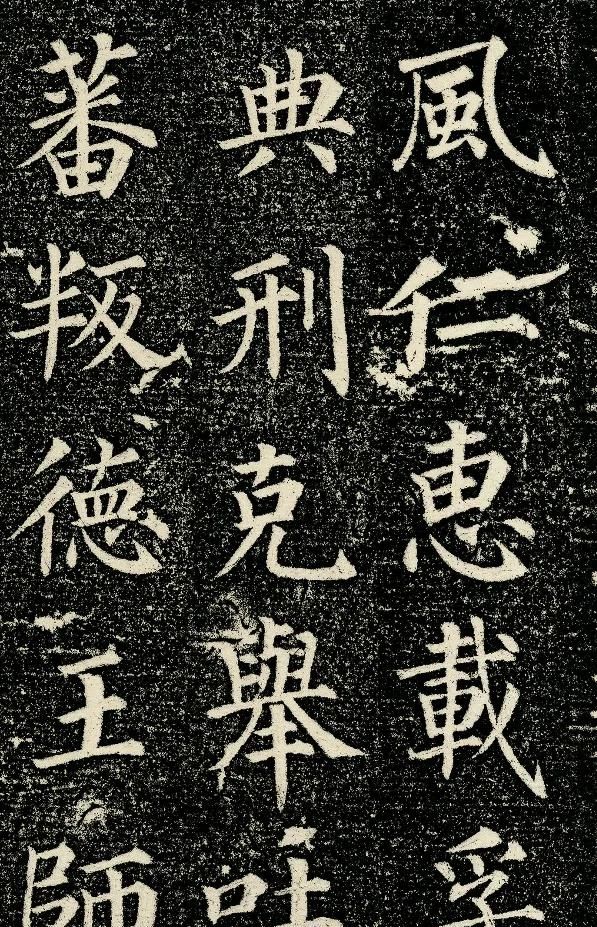 風仁惠載孚
典刑克舉吐
蕃叛德王師